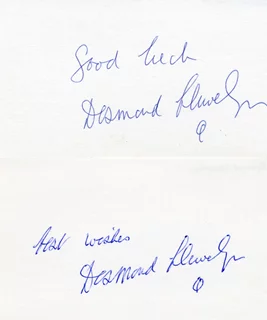 Good luck
Desmond Llewelyn
Q
best wishes
Desmond Llewelyn
Q